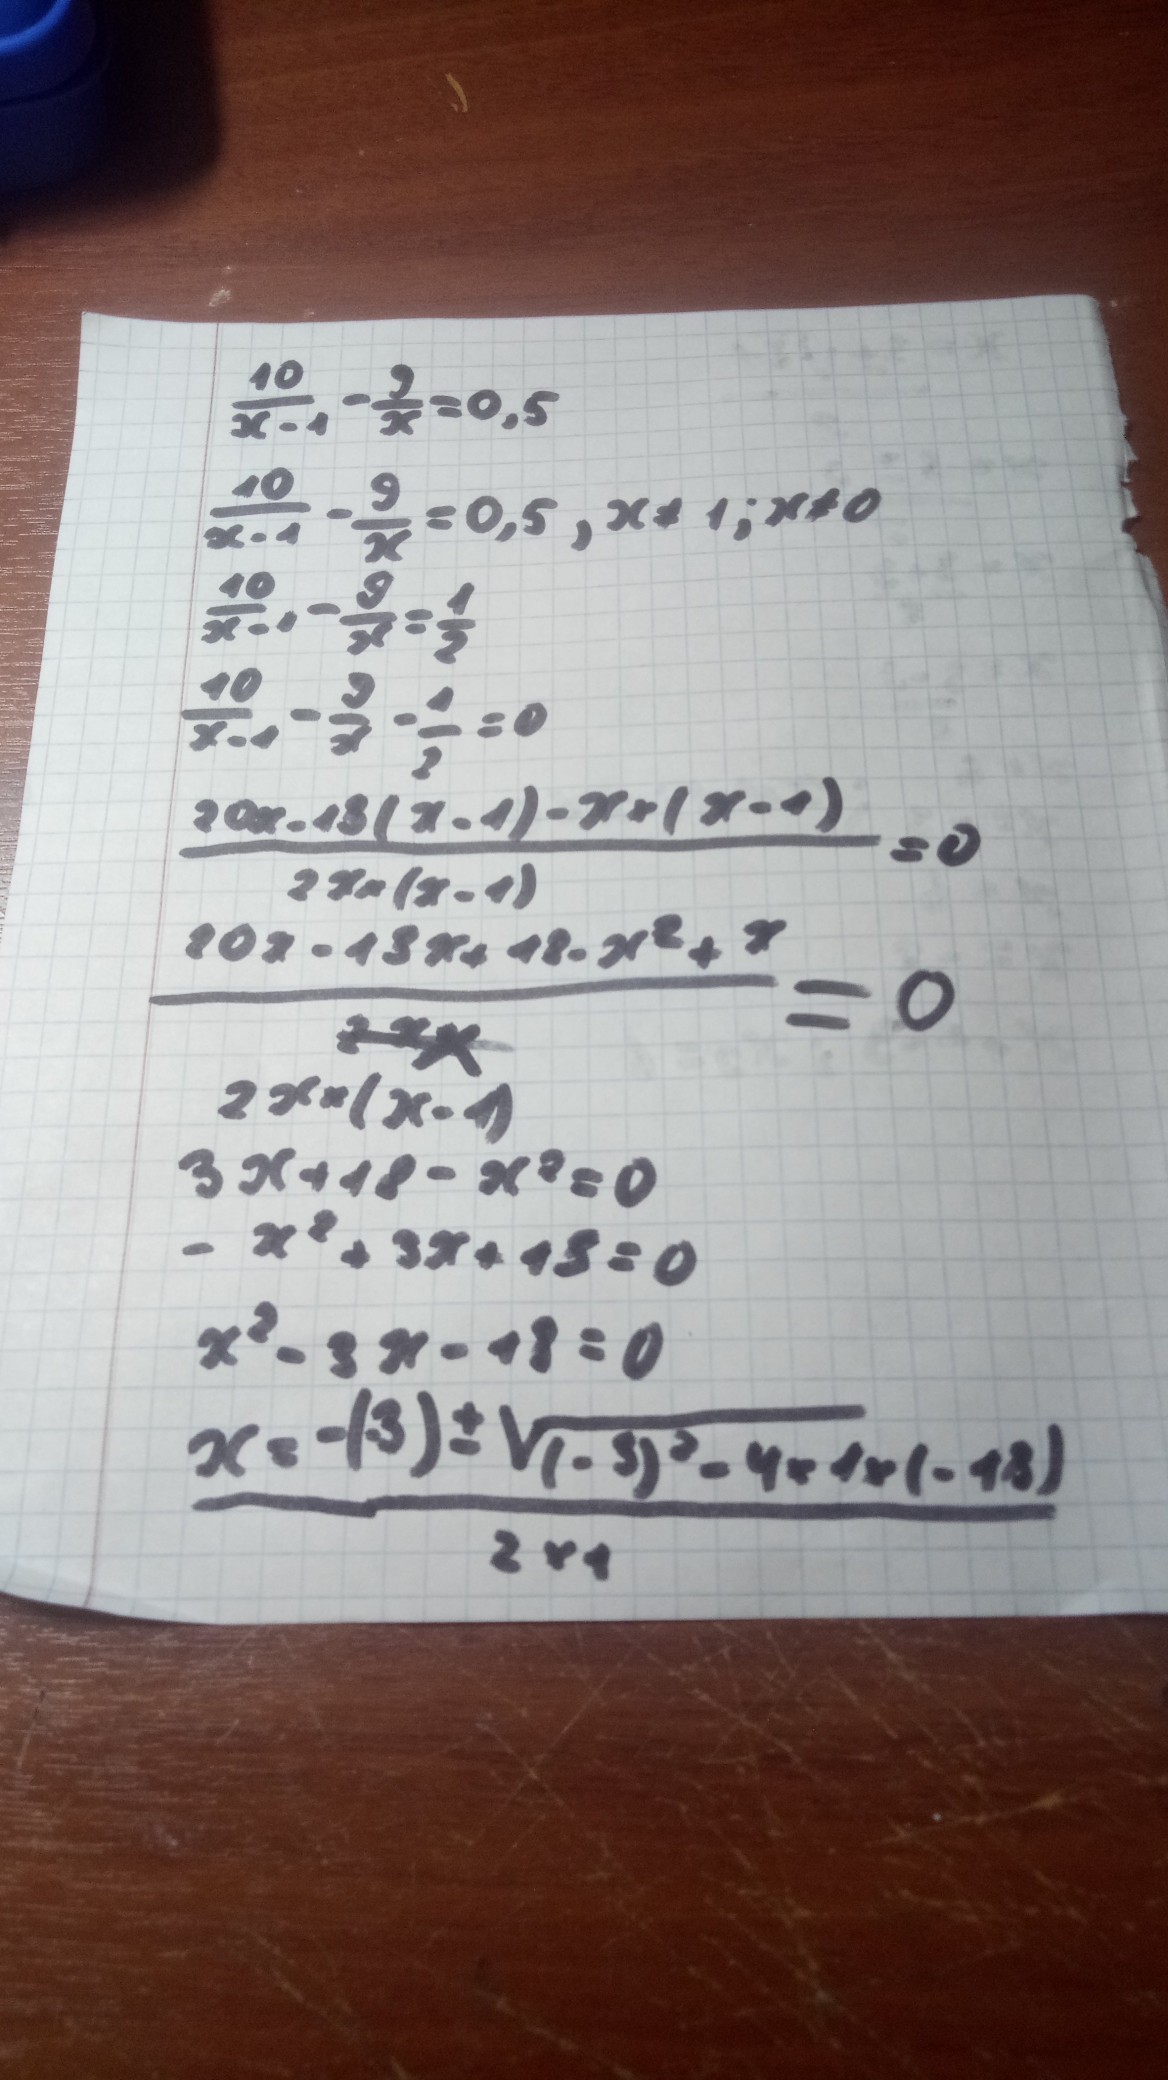 10/(x-1) - 9/x = 0,5
10/(x-1) - 9/x = 0,5, x≠1; x≠0
10/(x-1) - 9/x = 1/2
10/(x-1) - 9/x - 1/2 = 0
(20x-18(x-1)-x*(x-1))/(2x*(x-1)) = 0
(20x-18x+18-x²+x)/(2x*(x-1)) = 0
3x+18-x²=0
-x²+3x+18=0
x²-3x-18=0
x=(-(-3)±√((-3)²-4*1*(-18)))/(2*1)